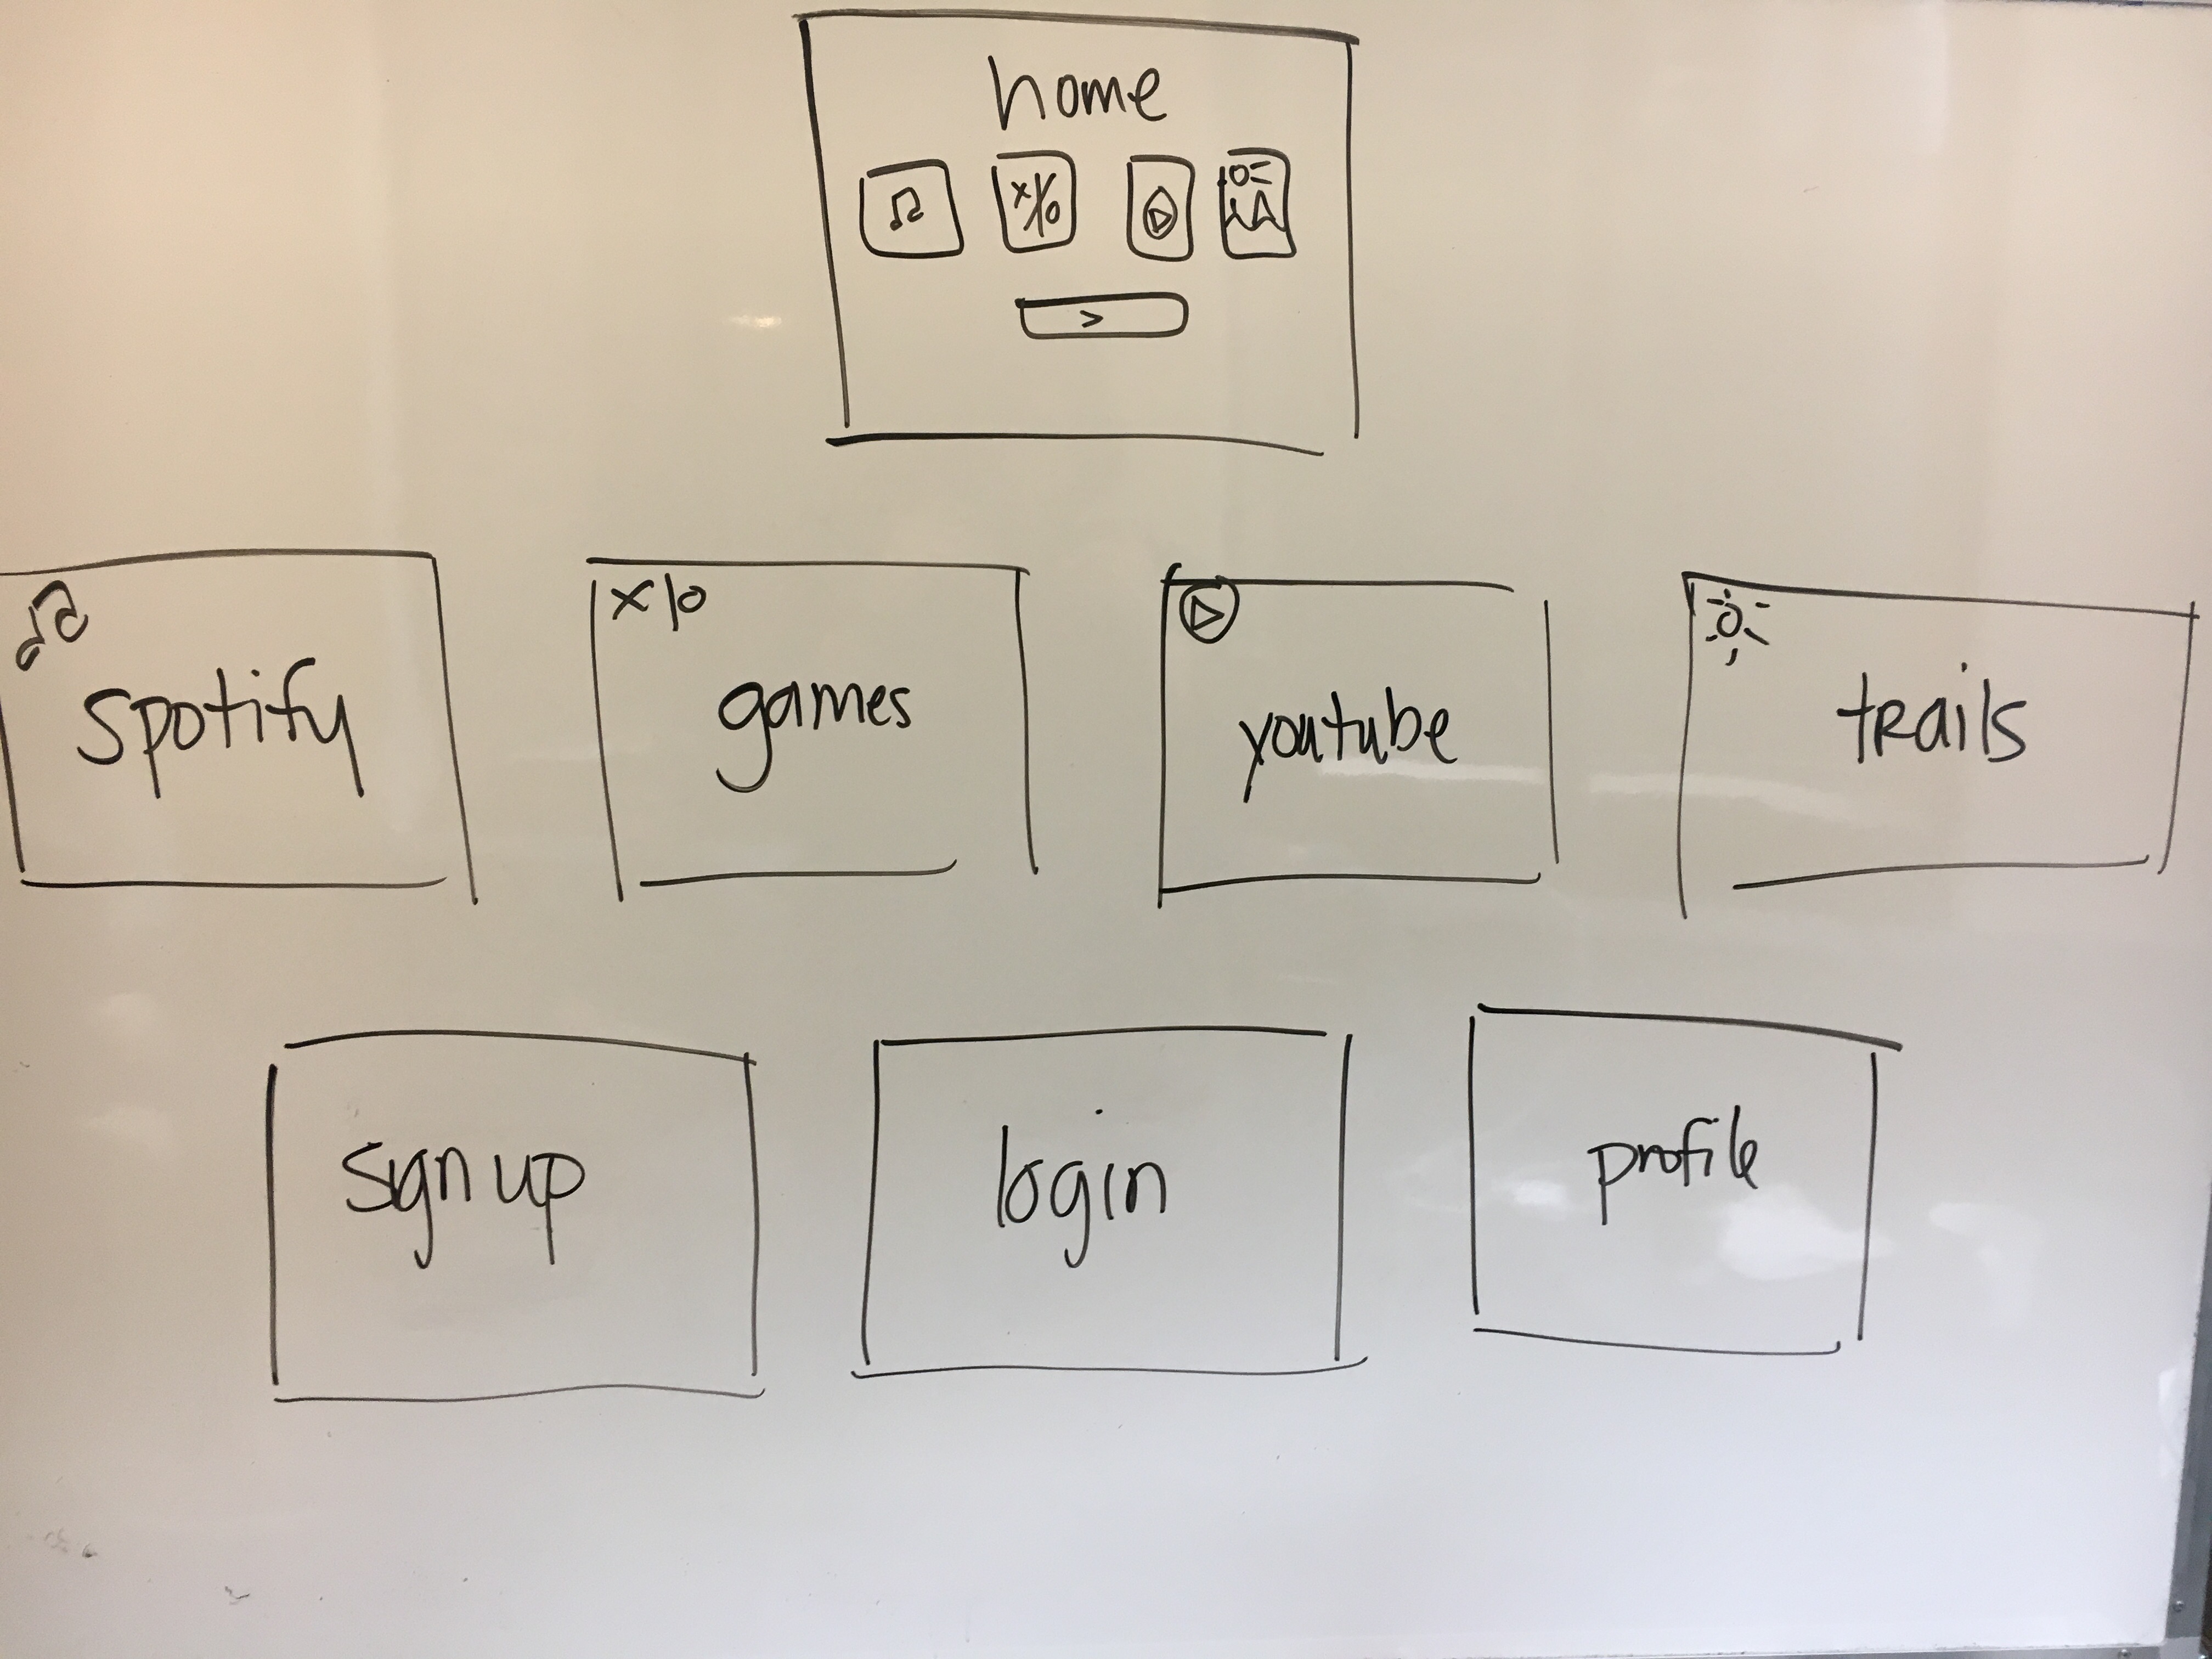 home
x/o
>
x/o
spotify
games
youtube
trails
sign up
login
profile